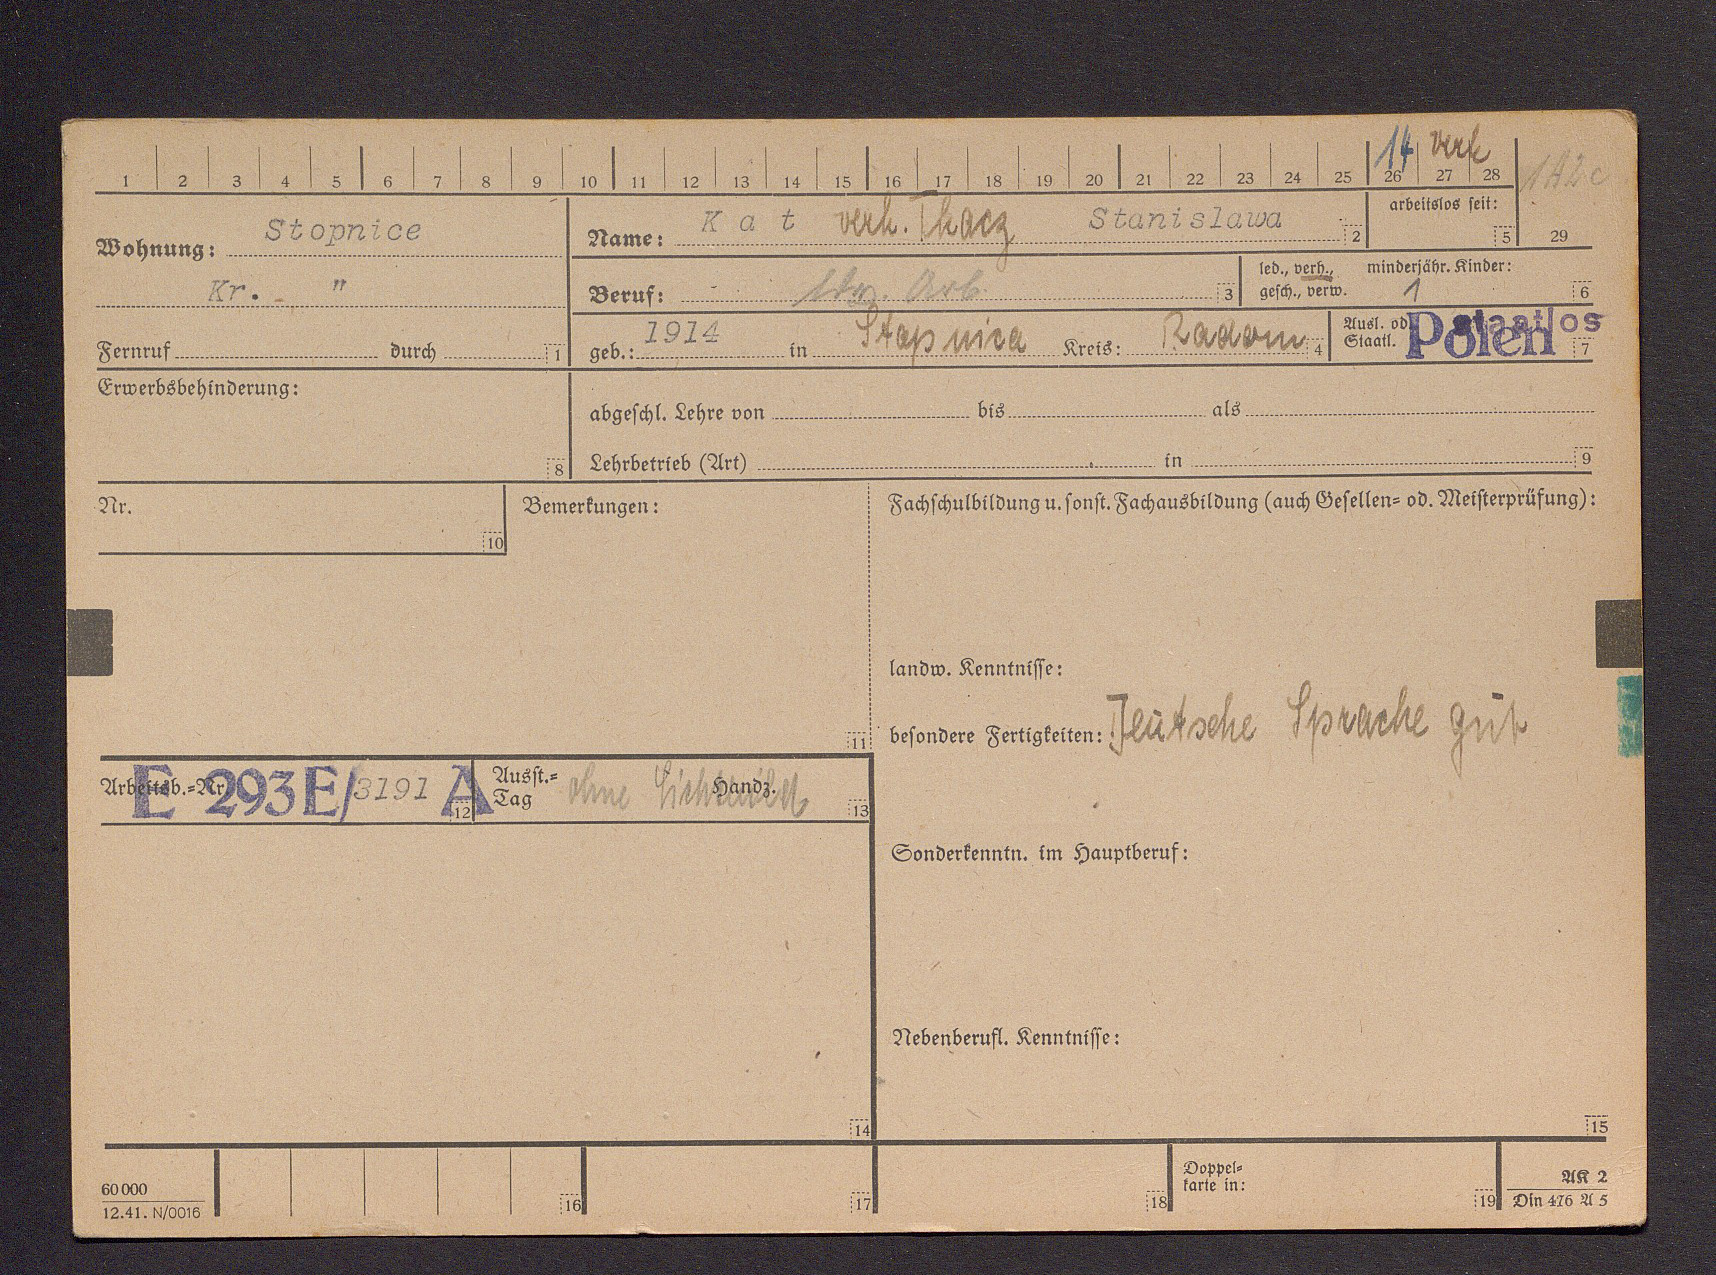 14 verh
1 2 3 4 5 6 7 8 9 10 11 12 13 14 15 16 17 18 19 20 21 22 23 24 25 26 27 28
142c
29
Wohnung: Stopnice
Kr. - "
Fernruf durch 1
Name: Kat verh. Tkacz Stanislawa 2
arbeitslos seit: 5
Beruf: Arb. 3
led., verh., minderjähr. Kinder:
gesch., verw. 1 6
geb.: 1914 in Stopnica Kreis: Radom 4
Ausl. od. staatlos
Staatl. Polen 7
Erwerbsbehinderung:
8
abgeschl. Lehre von bis als
Lehrbetrieb (Art) in 9
Nr.
10
Bemerkungen:
11
Fachschulbildung u. sonst. Fachausbildung (auch Gesellen- od. Meisterprüfung):
landw. Kenntnisse:
besondere Fertigkeiten: Deutsche Sprache gut
Arbeitsb.-Nr. E 293 E/3191 A 12
Ausst.-
Tag ohne Lichtbild Handz. 13
Sonderkenntn. im Hauptberuf:
Nebenberufl. Kenntnisse:
14
15
60 000
12.41. N/0016
16
17
18
Doppel-
karte in:
19
AK 2
Din 476 A 5